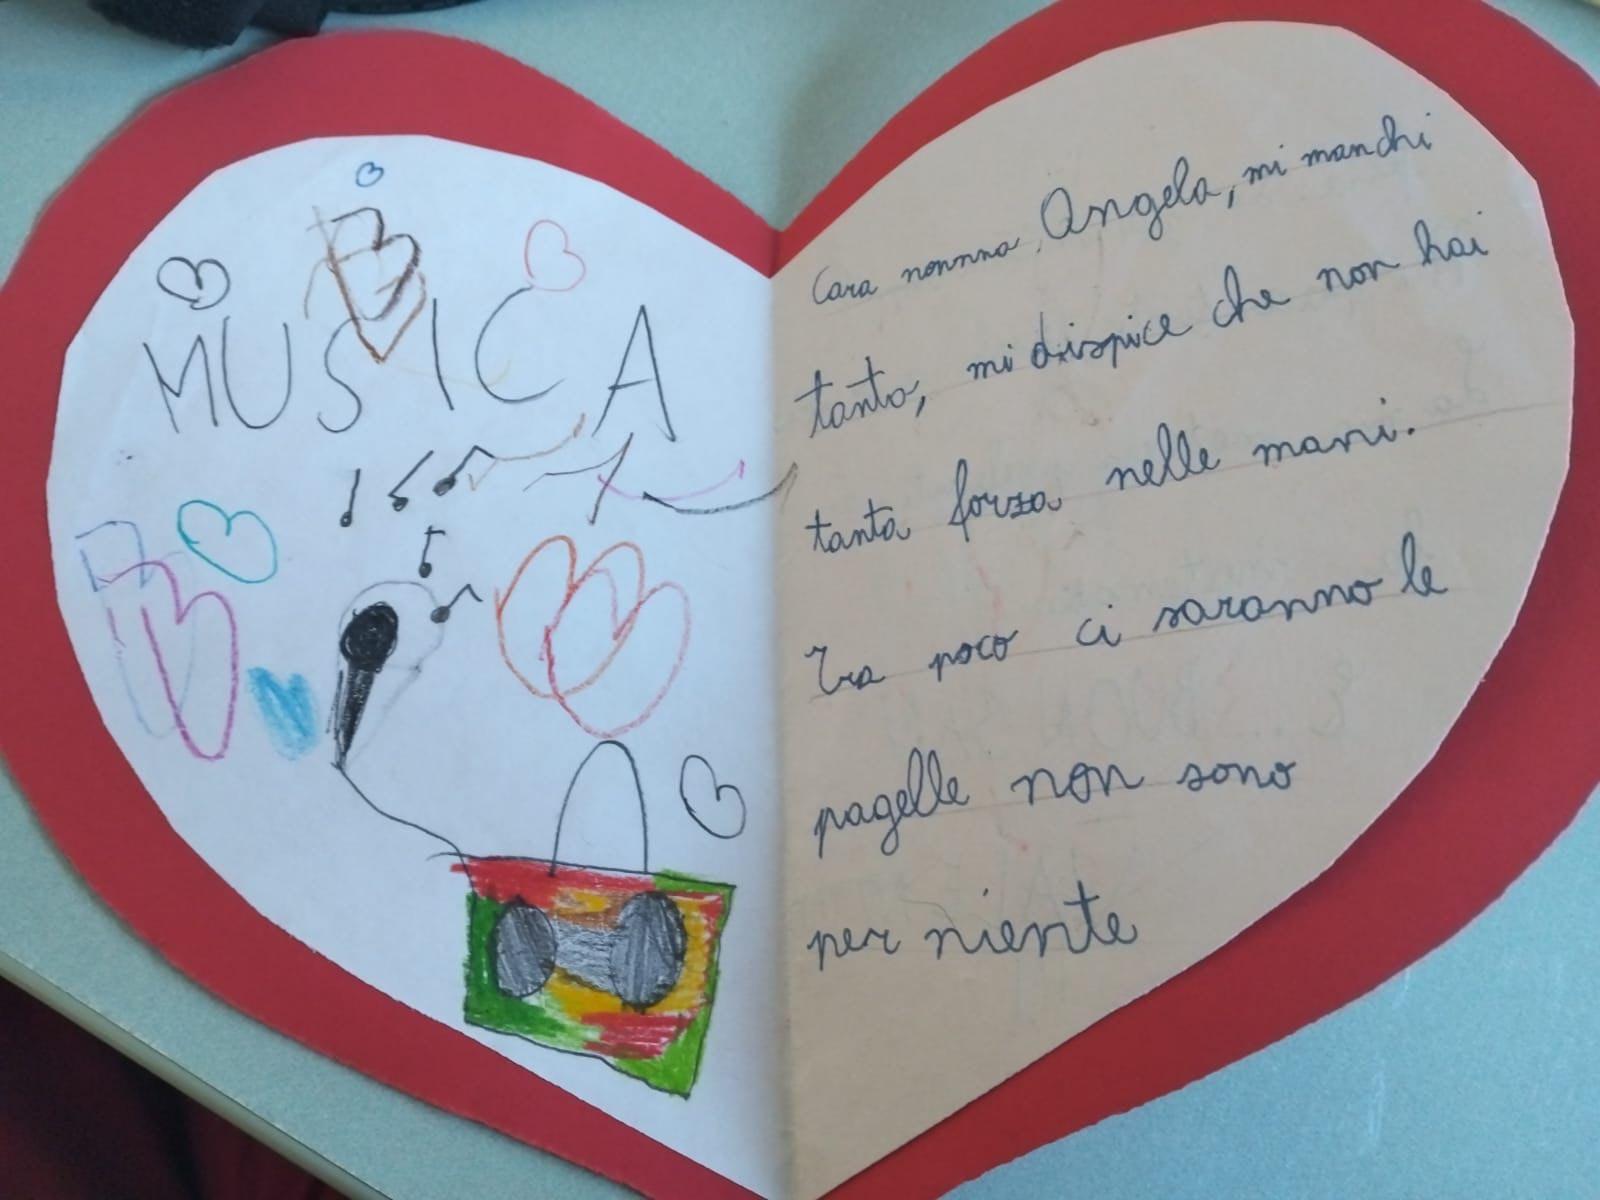 MUSICA
Cara nonnna Angela, mi manchi
tanto, mi dispice che non hai
tanta forza nelle mani.
Tra poco ci saranno le
pagelle non sono
per niente